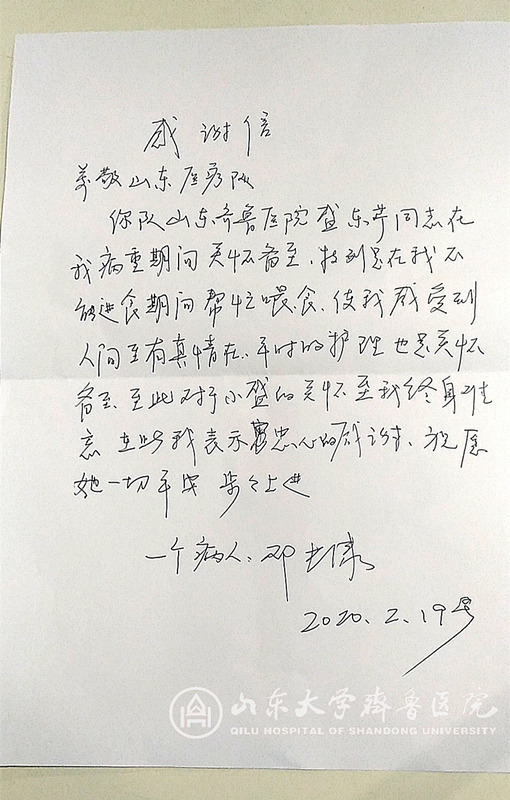 感谢信
尊敬山东医疗队
你队山东齐鲁医院盛东芹同志在
我病重期间关怀备至.特别是在我不
能进食期间帮忙喂食.使我感受到
人间至有真情在.平时的护理也是关怀
备至至此对于小盛的关怀至我终身难
忘 在此我表示衷忠心的感谢.祝愿
她一切平安 步步上进
一个病人:邓
2020.2.19号
山东大学齐鲁医院
QILU HOSPITAL OF SHANDONG UNIVERSITY